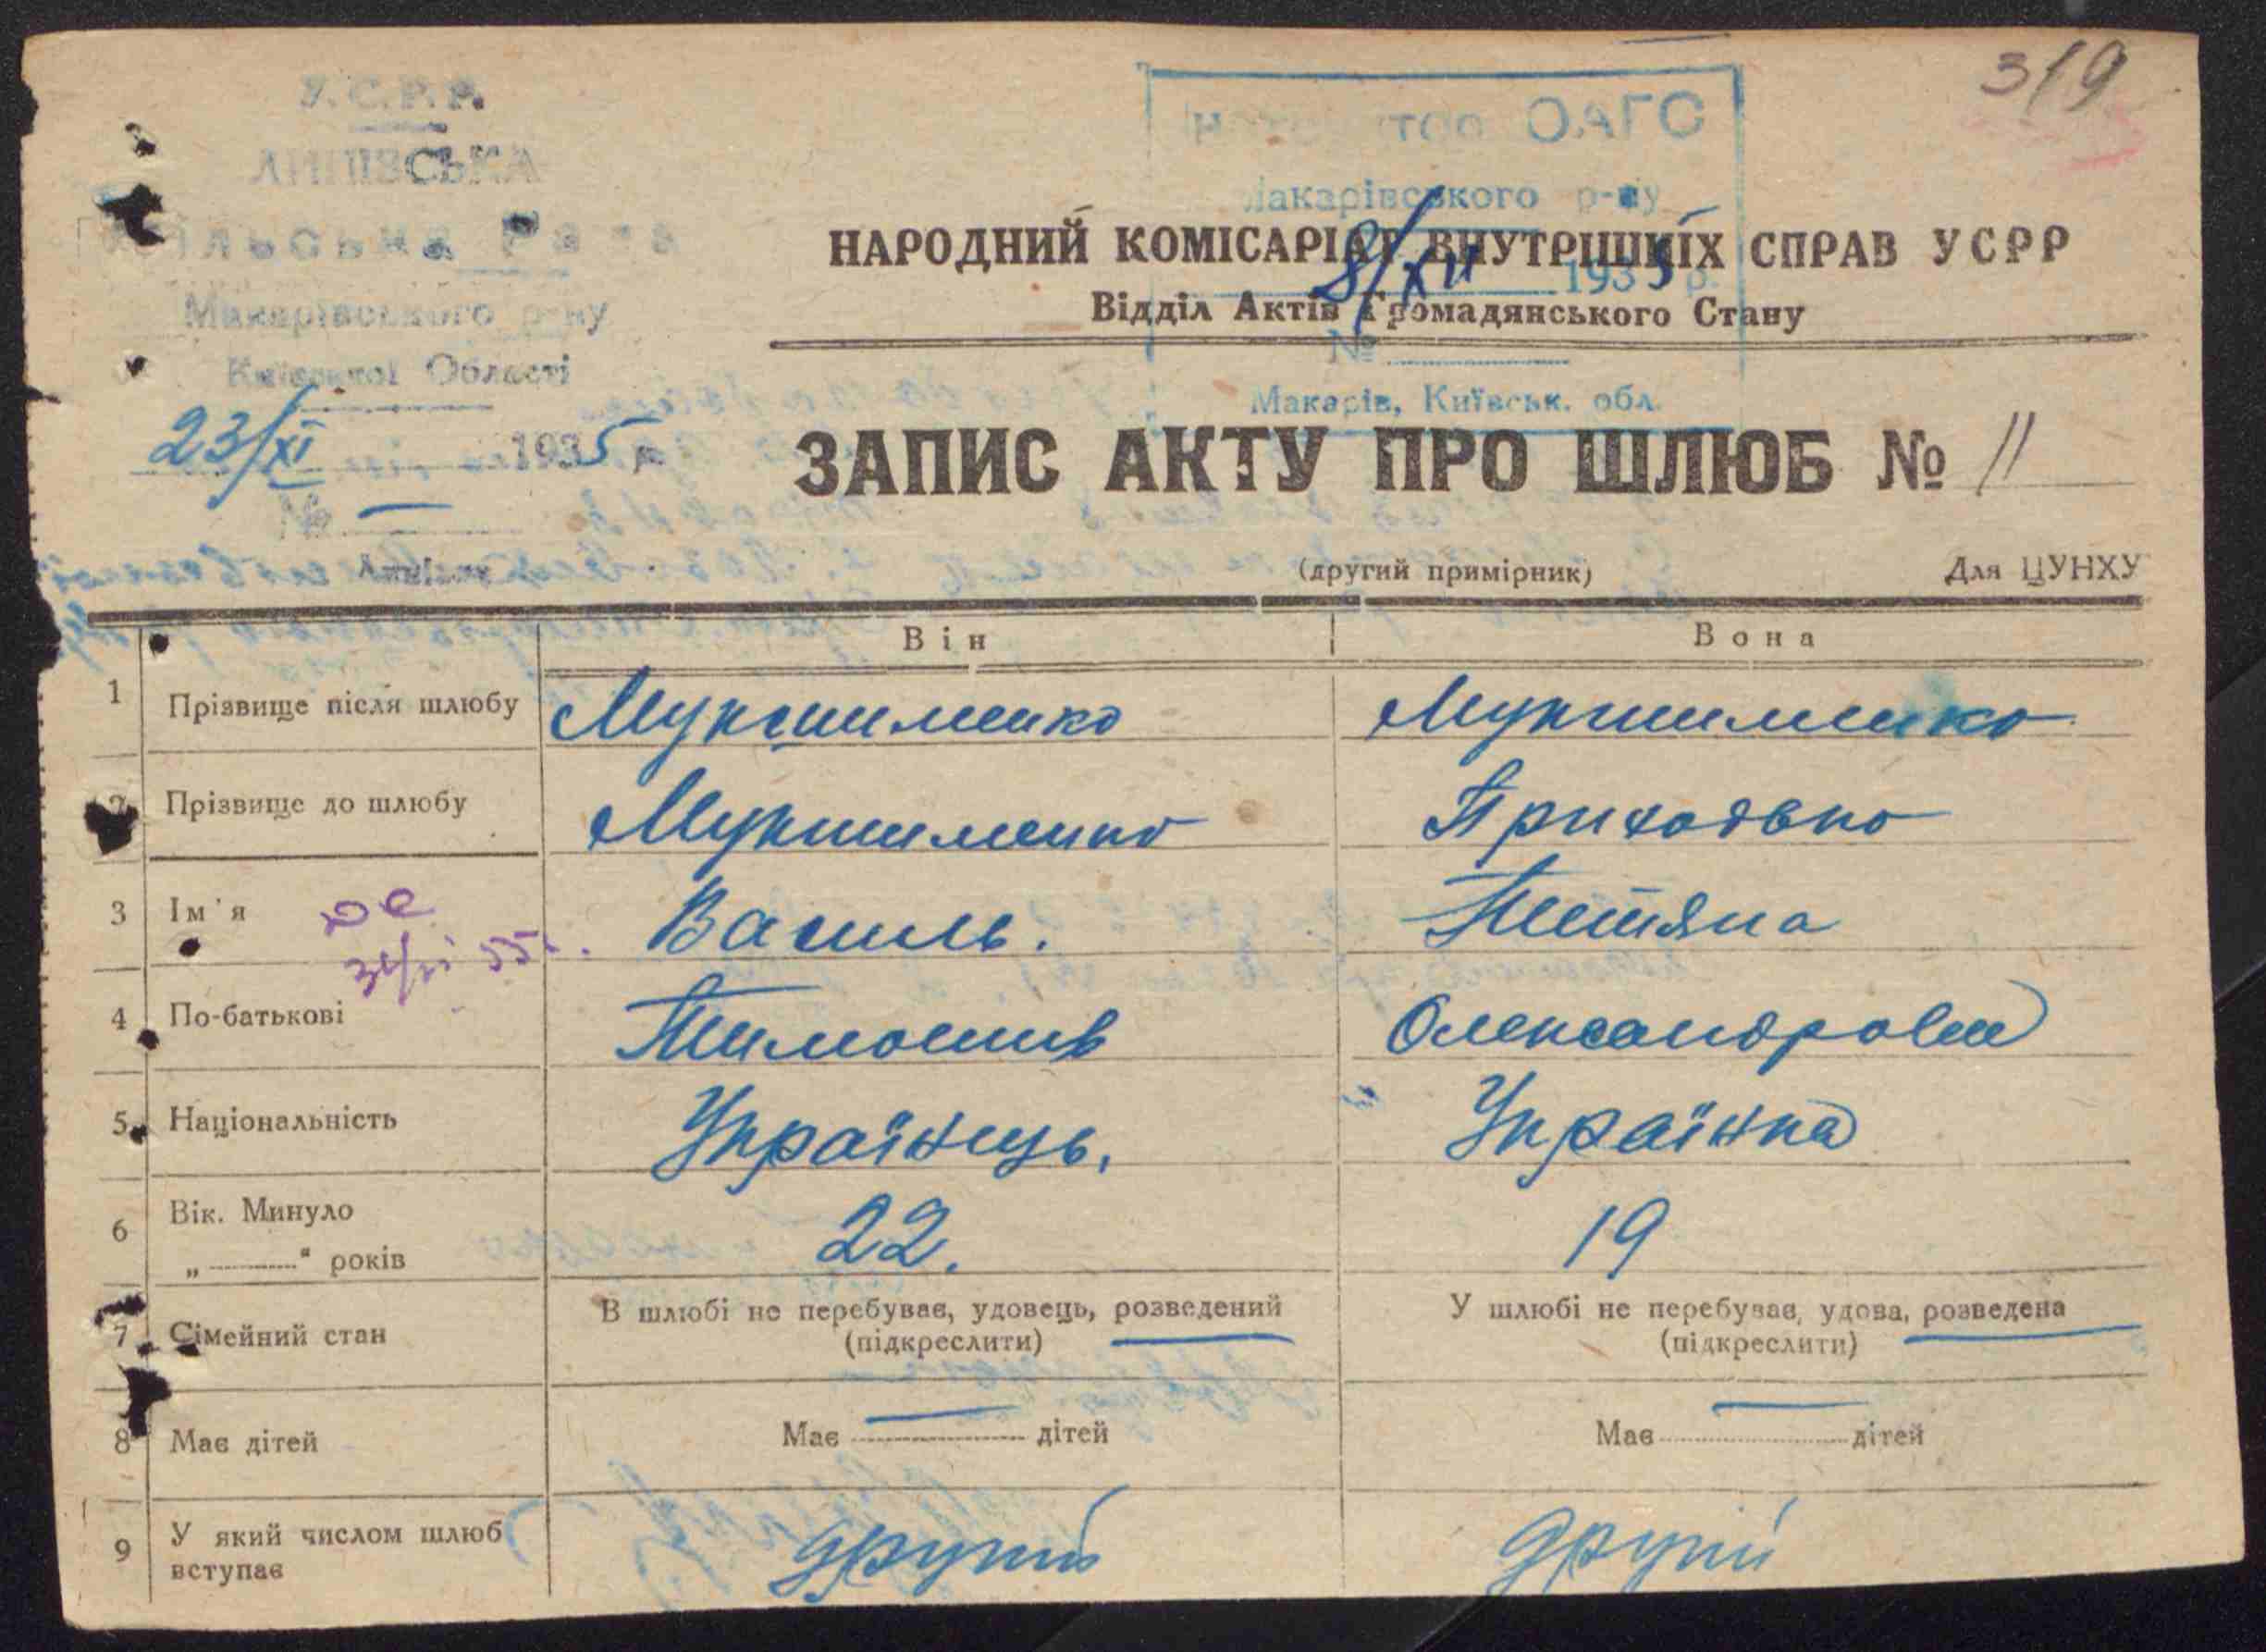 319
У.С.Р.Р.
ЛИПІВСЬКА
Сільська Рада
Макарівського р-ну
Київської Області
23/XI 1935 р.
№ —
ОАГС
Макарівського р-ну
8/XII 1935 р.
№
Макарів, Київськ. обл.
НАРОДНИЙ КОМІСАРІАТ ВНУТРІШНІХ СПРАВ УСРР
Відділ Актів Громадянського Стану
ЗАПИС АКТУ ПРО ШЛЮБ № 11
(другий примірник) Для ЦУНХУ
Він Вона
1 Прізвище після шлюбу Мукшименко Мукшименко
2 Прізвище до шлюбу Мукшименко Приходько
3 Ім'я Василь. Тетяна
4 По-батькові Тимошив Олександровна
5 Національність Українець. Українка
6 Вік. Минуло „ " років 22. 19
7 Сімейний стан В шлюбі не перебував, удовець, розведений (підкреслити) У шлюбі не перебував, удова, розведена (підкреслити)
8 Має дітей Має — дітей Має — дітей
9 У який числом шлюб вступає другий другий